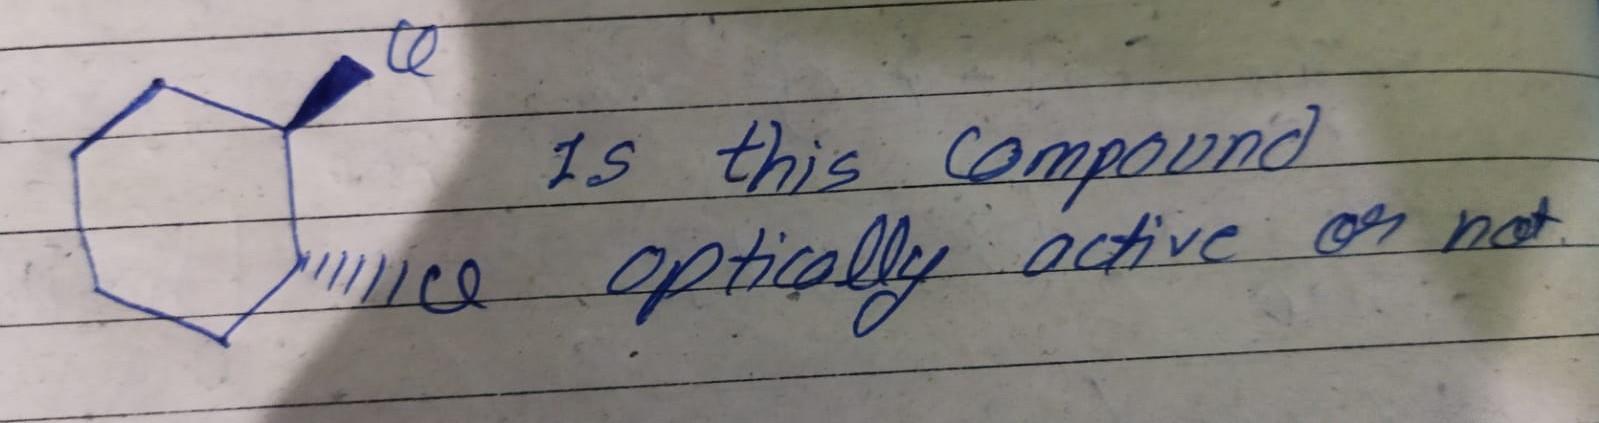 Cl
Is this compound
Cl optically active or not.